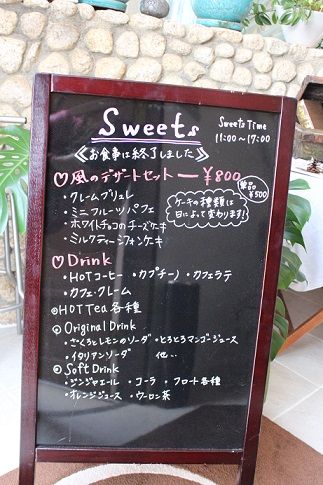 Sweets
Sweets Time
11:00〜17:00
《お食事は終了しました》
♡風のデザートセット ー ¥800
単品 ¥500
・クレームブリュレ
・ミニフルーツパフェ
・ホワイトチョコのチーズケーキ
・ミルクティーシフォンケーキ
ケーキの種類は
日によって変わります!
♡Drink
・HOTコーヒー ・カプチーノ ・カフェラテ
・カフェ・クレーム
HOT Tea 各種
Original Drink
・さくらとレモンのソーダ ・とろとろマンゴージュース
・イタリアンソーダ 他…
Soft Drink
・ジンジャエール ・コーラ ・フロート各種
・オレンジジュース ・ウーロン茶